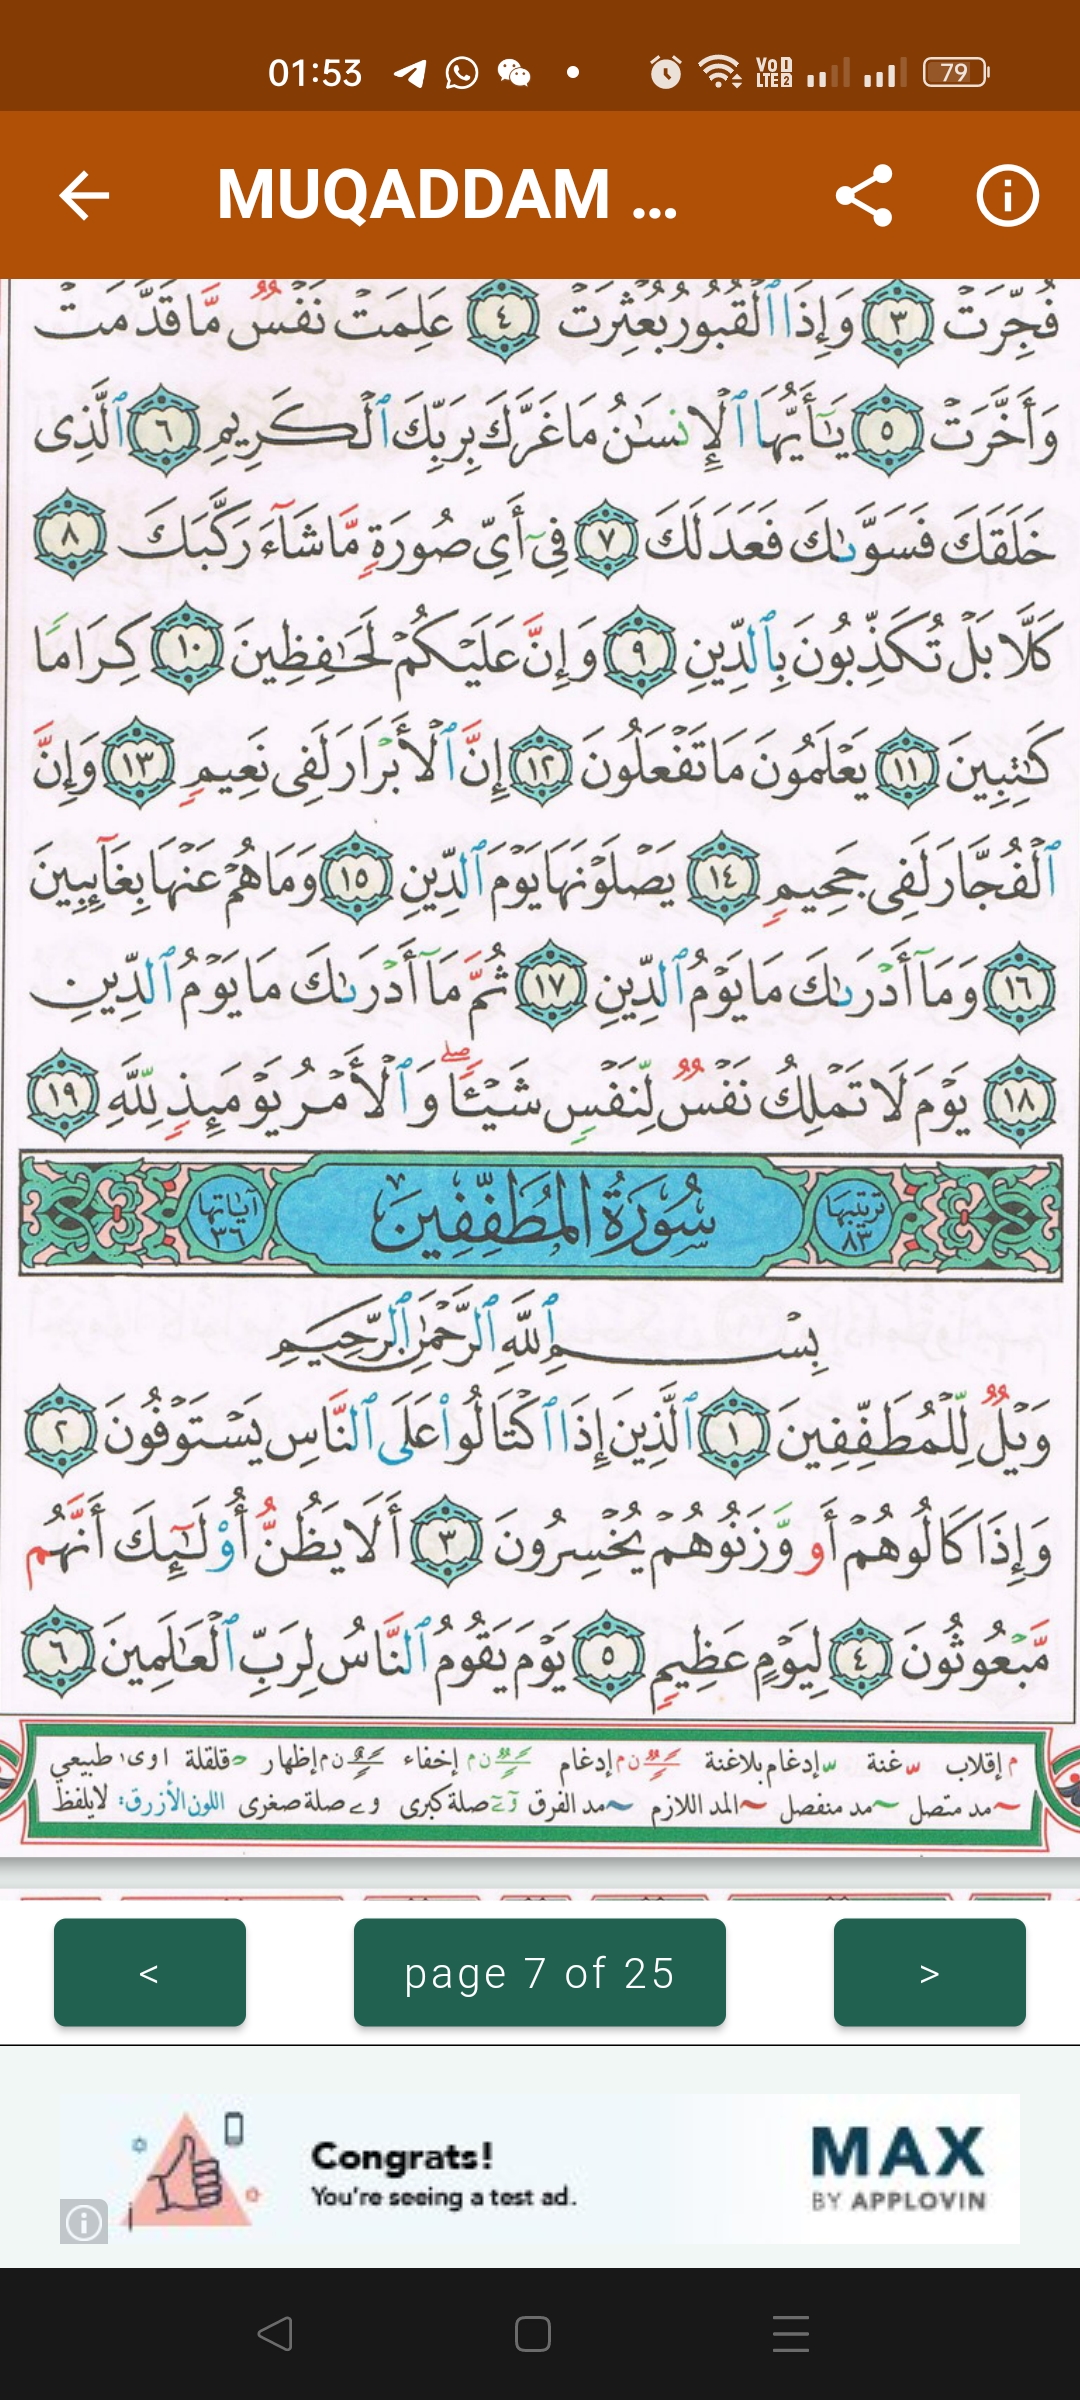 01:53
VoD LTE2
79
MUQADDAM ...
فُجِّرَتْ ٣ وَإِذَا ٱلْقُبُورُ بُعْثِرَتْ ٤ عَلِمَتْ نَفْسٌ مَّا قَدَّمَتْ
وَأَخَّرَتْ ٥ يَٰٓأَيُّهَا ٱلْإِنسَٰنُ مَا غَرَّكَ بِرَبِّكَ ٱلْكَرِيمِ ٦ ٱلَّذِى
خَلَقَكَ فَسَوَّىٰكَ فَعَدَلَكَ ٧ فِىٓ أَىِّ صُورَةٍ مَّا شَآءَ رَكَّبَكَ ٨
كَلَّا بَلْ تُكَذِّبُونَ بِٱلدِّينِ ٩ وَإِنَّ عَلَيْكُمْ لَحَٰفِظِينَ ١٠ كِرَامًا
كَٰتِبِينَ ١١ يَعْلَمُونَ مَا تَفْعَلُونَ ١٢ إِنَّ ٱلْأَبْرَارَ لَفِى نَعِيمٍ ١٣ وَإِنَّ
ٱلْفُجَّارَ لَفِى جَحِيمٍ ١٤ يَصْلَوْنَهَا يَوْمَ ٱلدِّينِ ١٥ وَمَا هُمْ عَنْهَا بِغَآئِبِينَ
١٦ وَمَآ أَدْرَىٰكَ مَا يَوْمُ ٱلدِّينِ ١٧ ثُمَّ مَآ أَدْرَىٰكَ مَا يَوْمُ ٱلدِّينِ
١٨ يَوْمَ لَا تَمْلِكُ نَفْسٌ لِّنَفْسٍ شَيْـًٔا ۖ وَٱلْأَمْرُ يَوْمَئِذٍ لِّلَّهِ ١٩
ترتيبها ٨٣ سُورَةُ المُطَفِّفِين آياتها ٣٦
بِسْمِ ٱللَّهِ ٱلرَّحْمَٰنِ ٱلرَّحِيمِ
وَيْلٌ لِّلْمُطَفِّفِينَ ١ ٱلَّذِينَ إِذَا ٱكْتَالُوا۟ عَلَى ٱلنَّاسِ يَسْتَوْفُونَ ٢
وَإِذَا كَالُوهُمْ أَو وَّزَنُوهُمْ يُخْسِرُونَ ٣ أَلَا يَظُنُّ أُو۟لَٰٓئِكَ أَنَّهُم
مَّبْعُوثُونَ ٤ لِيَوْمٍ عَظِيمٍ ٥ يَوْمَ يَقُومُ ٱلنَّاسُ لِرَبِّ ٱلْعَٰلَمِينَ ٦
م إقلاب غنة إدغام بلاغنة ن م إدغام ن م إخفاء ن م إظهار قلقلة ا و ى طبيعي
مد متصل مد منفصل المد اللازم مد الفرق صلة كبرى و ے صلة صغرى اللون الأزرق: لايلفظ
< page 7 of 25 >
Congrats!
You're seeing a test ad.
MAX
BY APPLOVIN